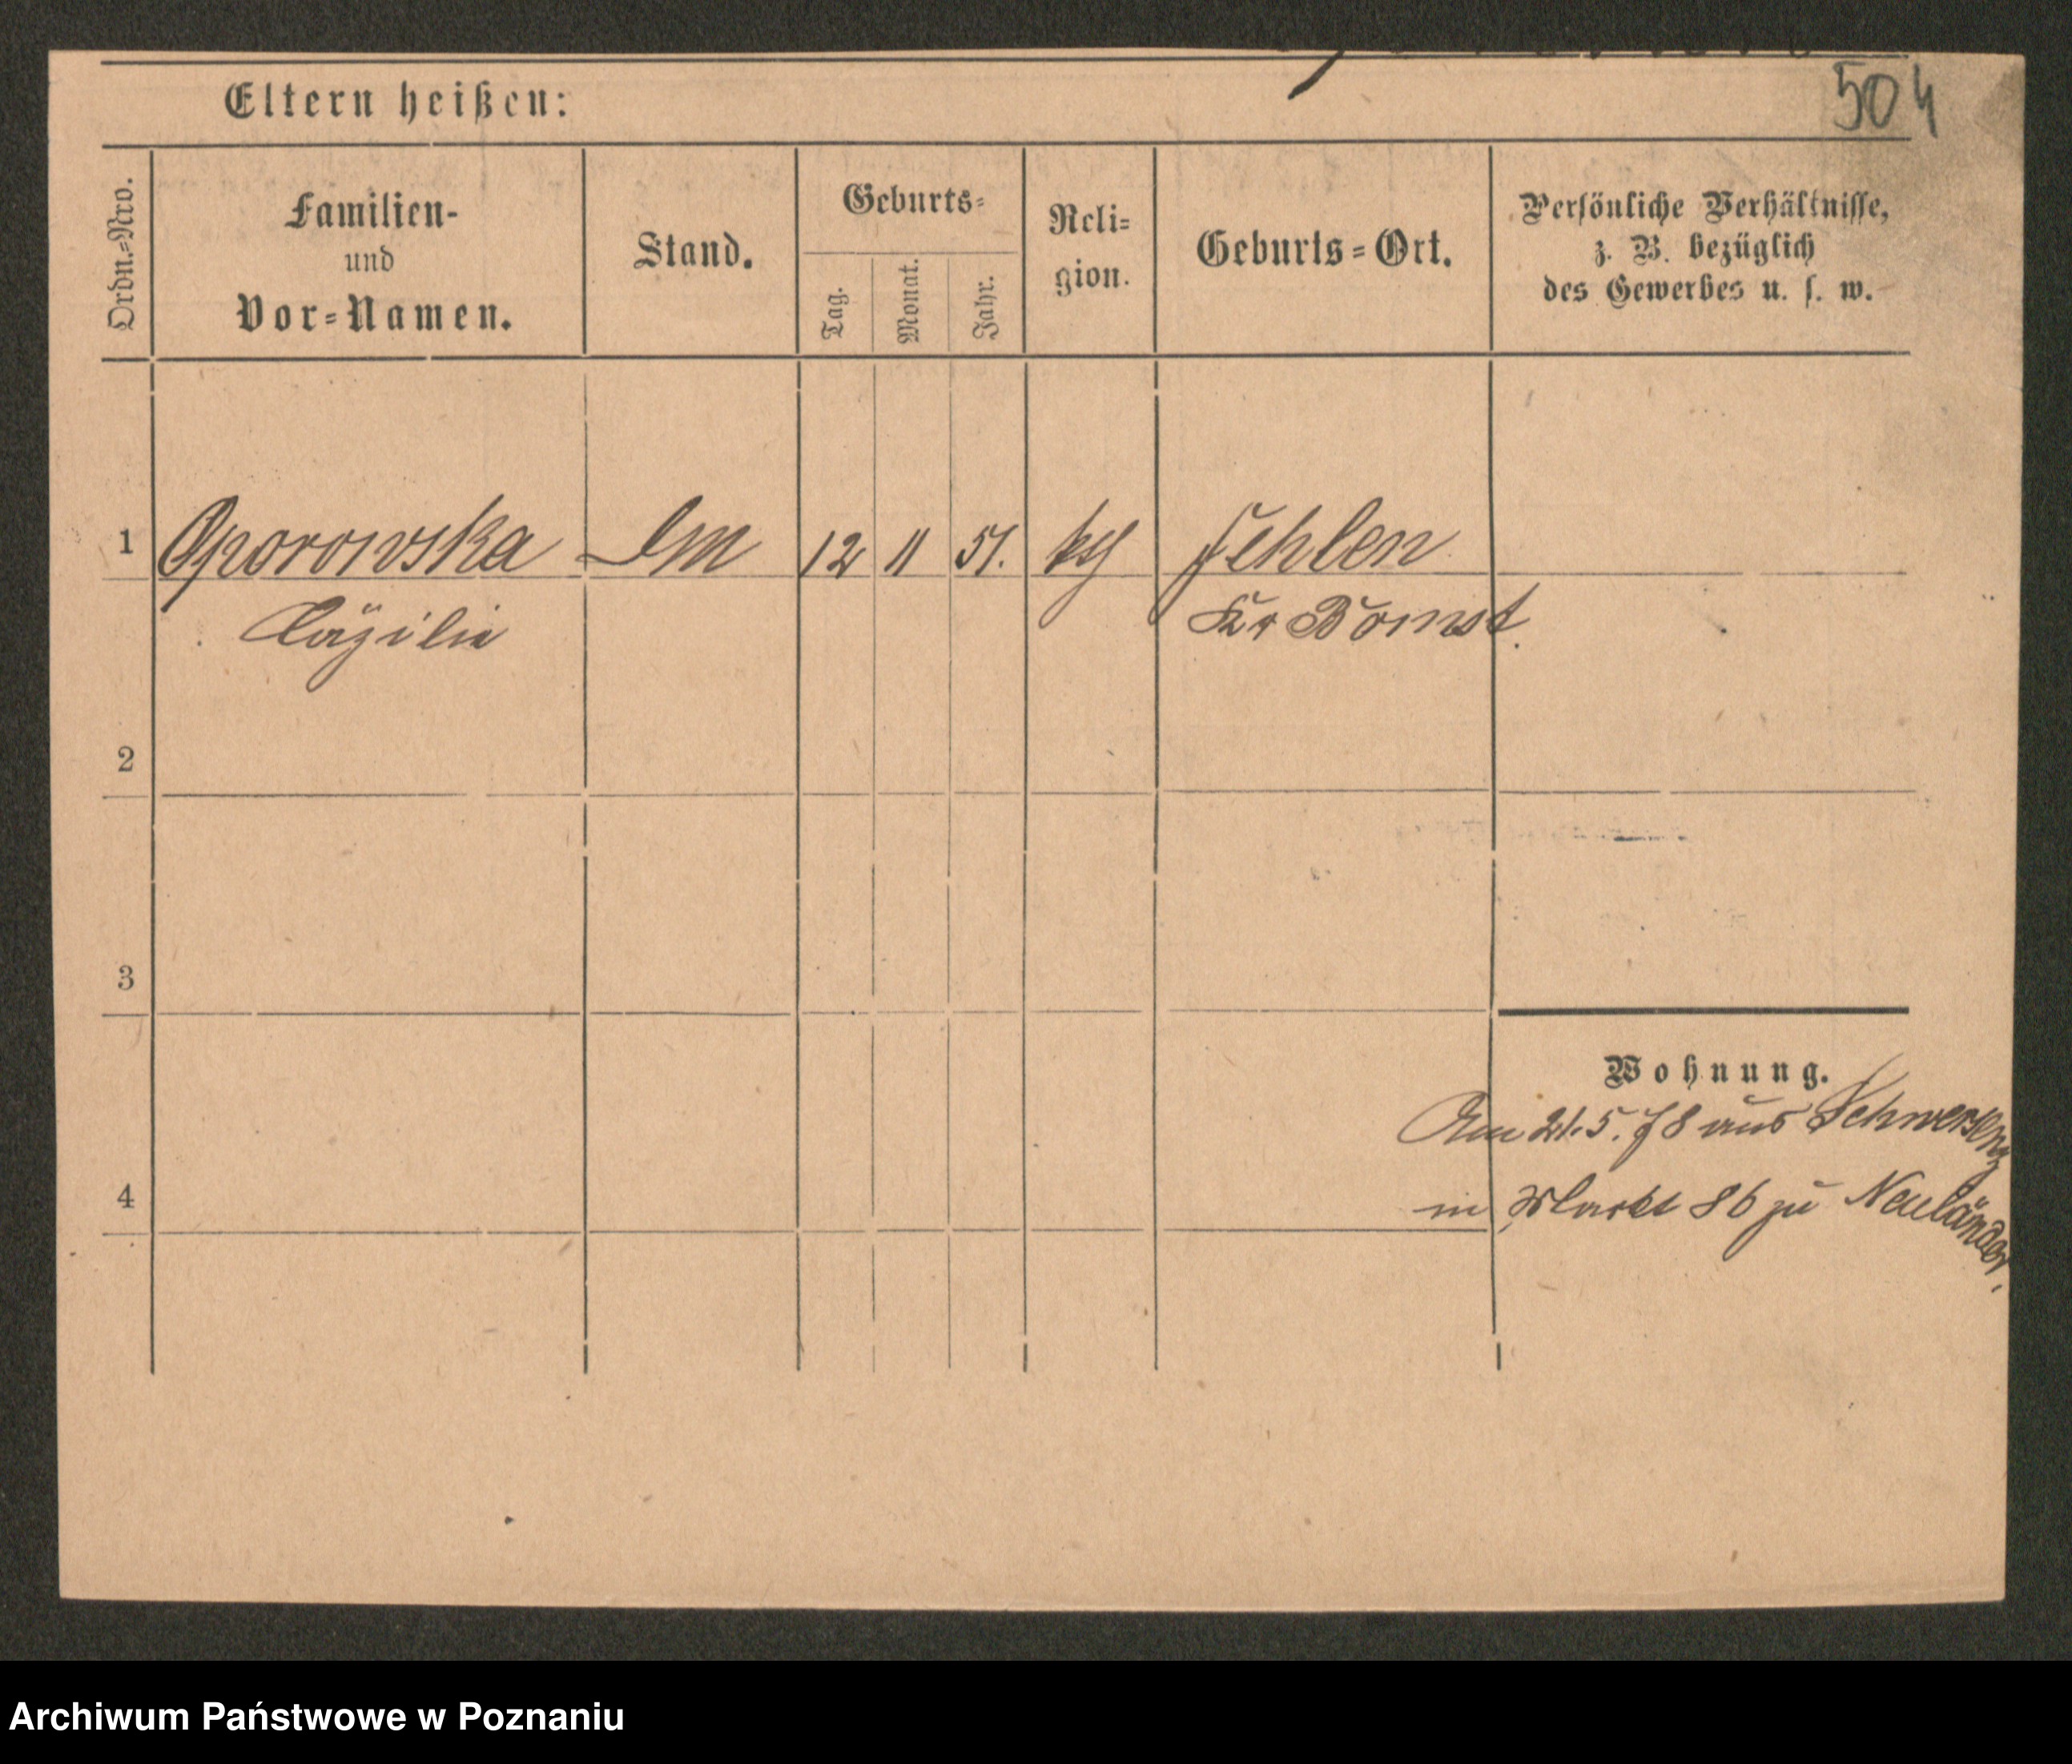 504
Eltern heißen:
Ordn.=Nro.
Familien-
und
Vor=Namen.
Stand.
Geburts=
Tag.
Monat.
Jahr.
Reli=
gion.
Geburts=Ort.
Persönliche Verhältnisse,
z. B. bezüglich
des Gewerbes u. s. w.
1 Oporowska 12 11 51. Fehlen
Cäzilie Kr Bomst.
2
3
Wohnung.
Am 21.5.78 aus Schwersenz
4
in Markt 86 zu Neuländer.
Archiwum Państwowe w Poznaniu